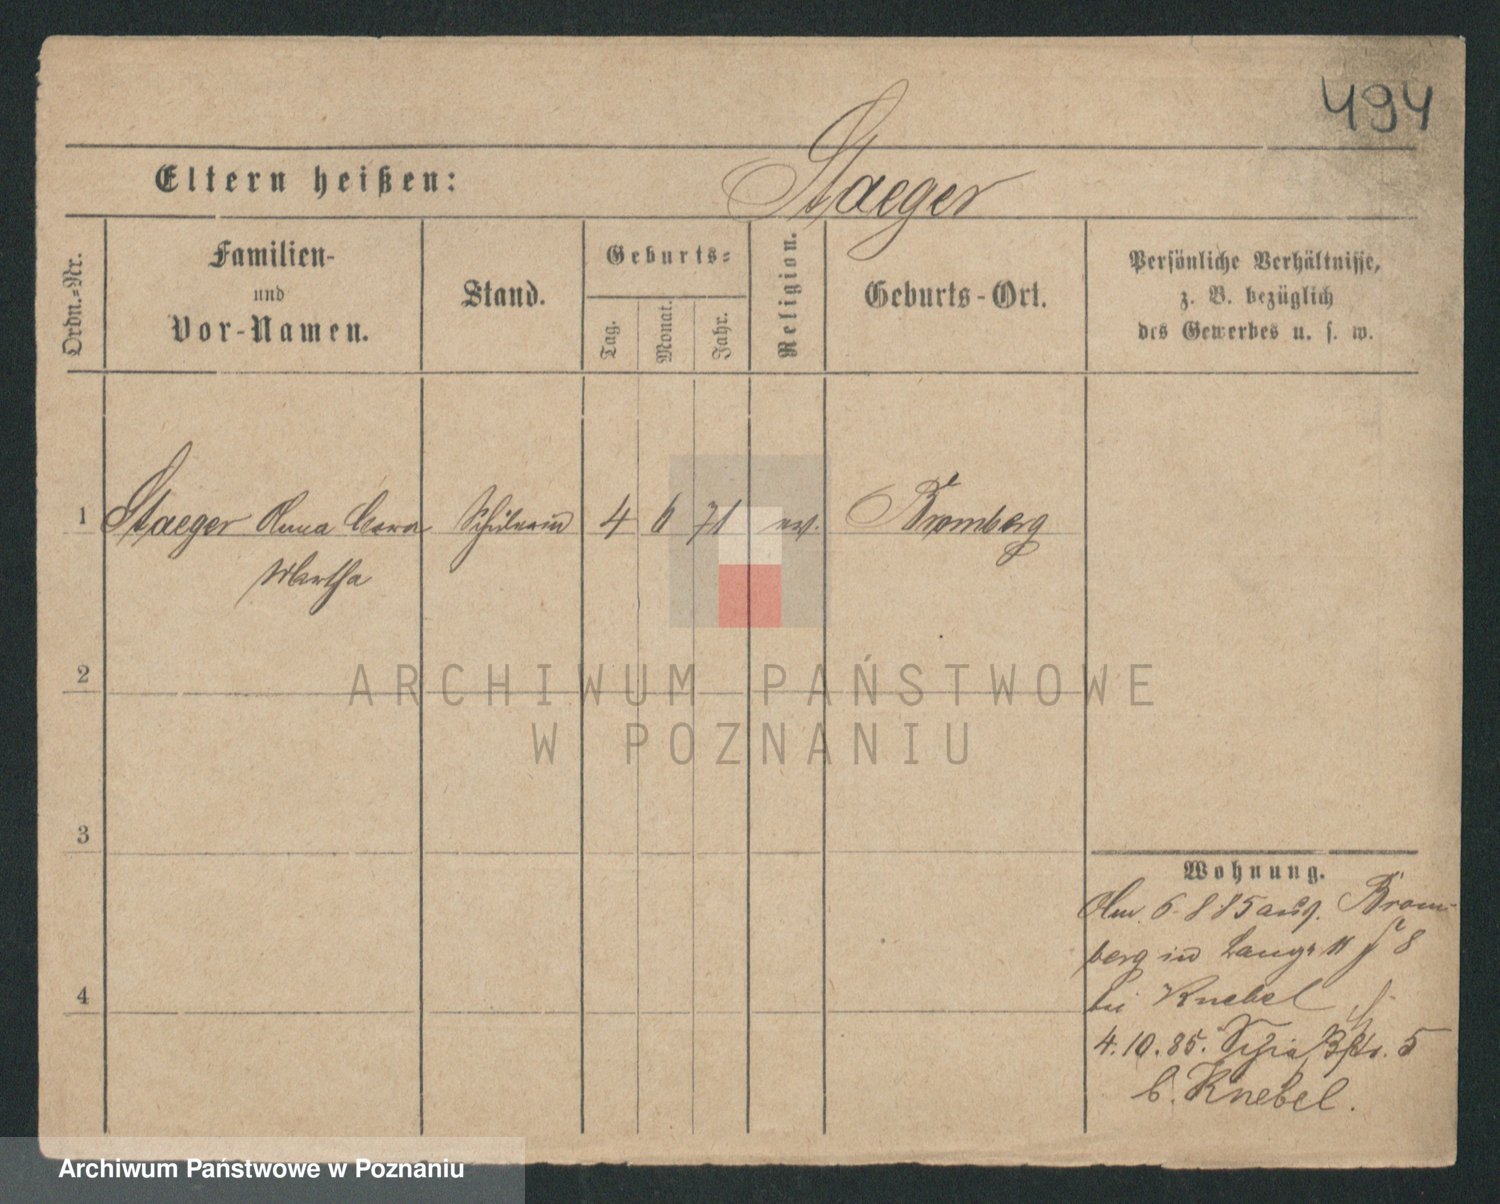 494
Eltern heißen:
Staeger
Ordn.-Nr.
Familien-
und
Vor-Namen.
Stand.
Geburts-
Tag.
Monat.
Jahr.
Religion.
Geburts-Ort.
Persönliche Verhältnisse,
z. B. bezüglich
des Gewerbes u. s. w.
1 Staeger Anna Clara Schülerin 4 6 71 ev. Bromberg
Martha
2
ARCHIWUM PAŃSTWOWE
W POZNANIU
3
Wohnung.
6 8 85 Brom-
berg Lange 8
bei Knebel
4
4.10.85. 5
b. Knebel.
Archiwum Państwowe w Poznaniu